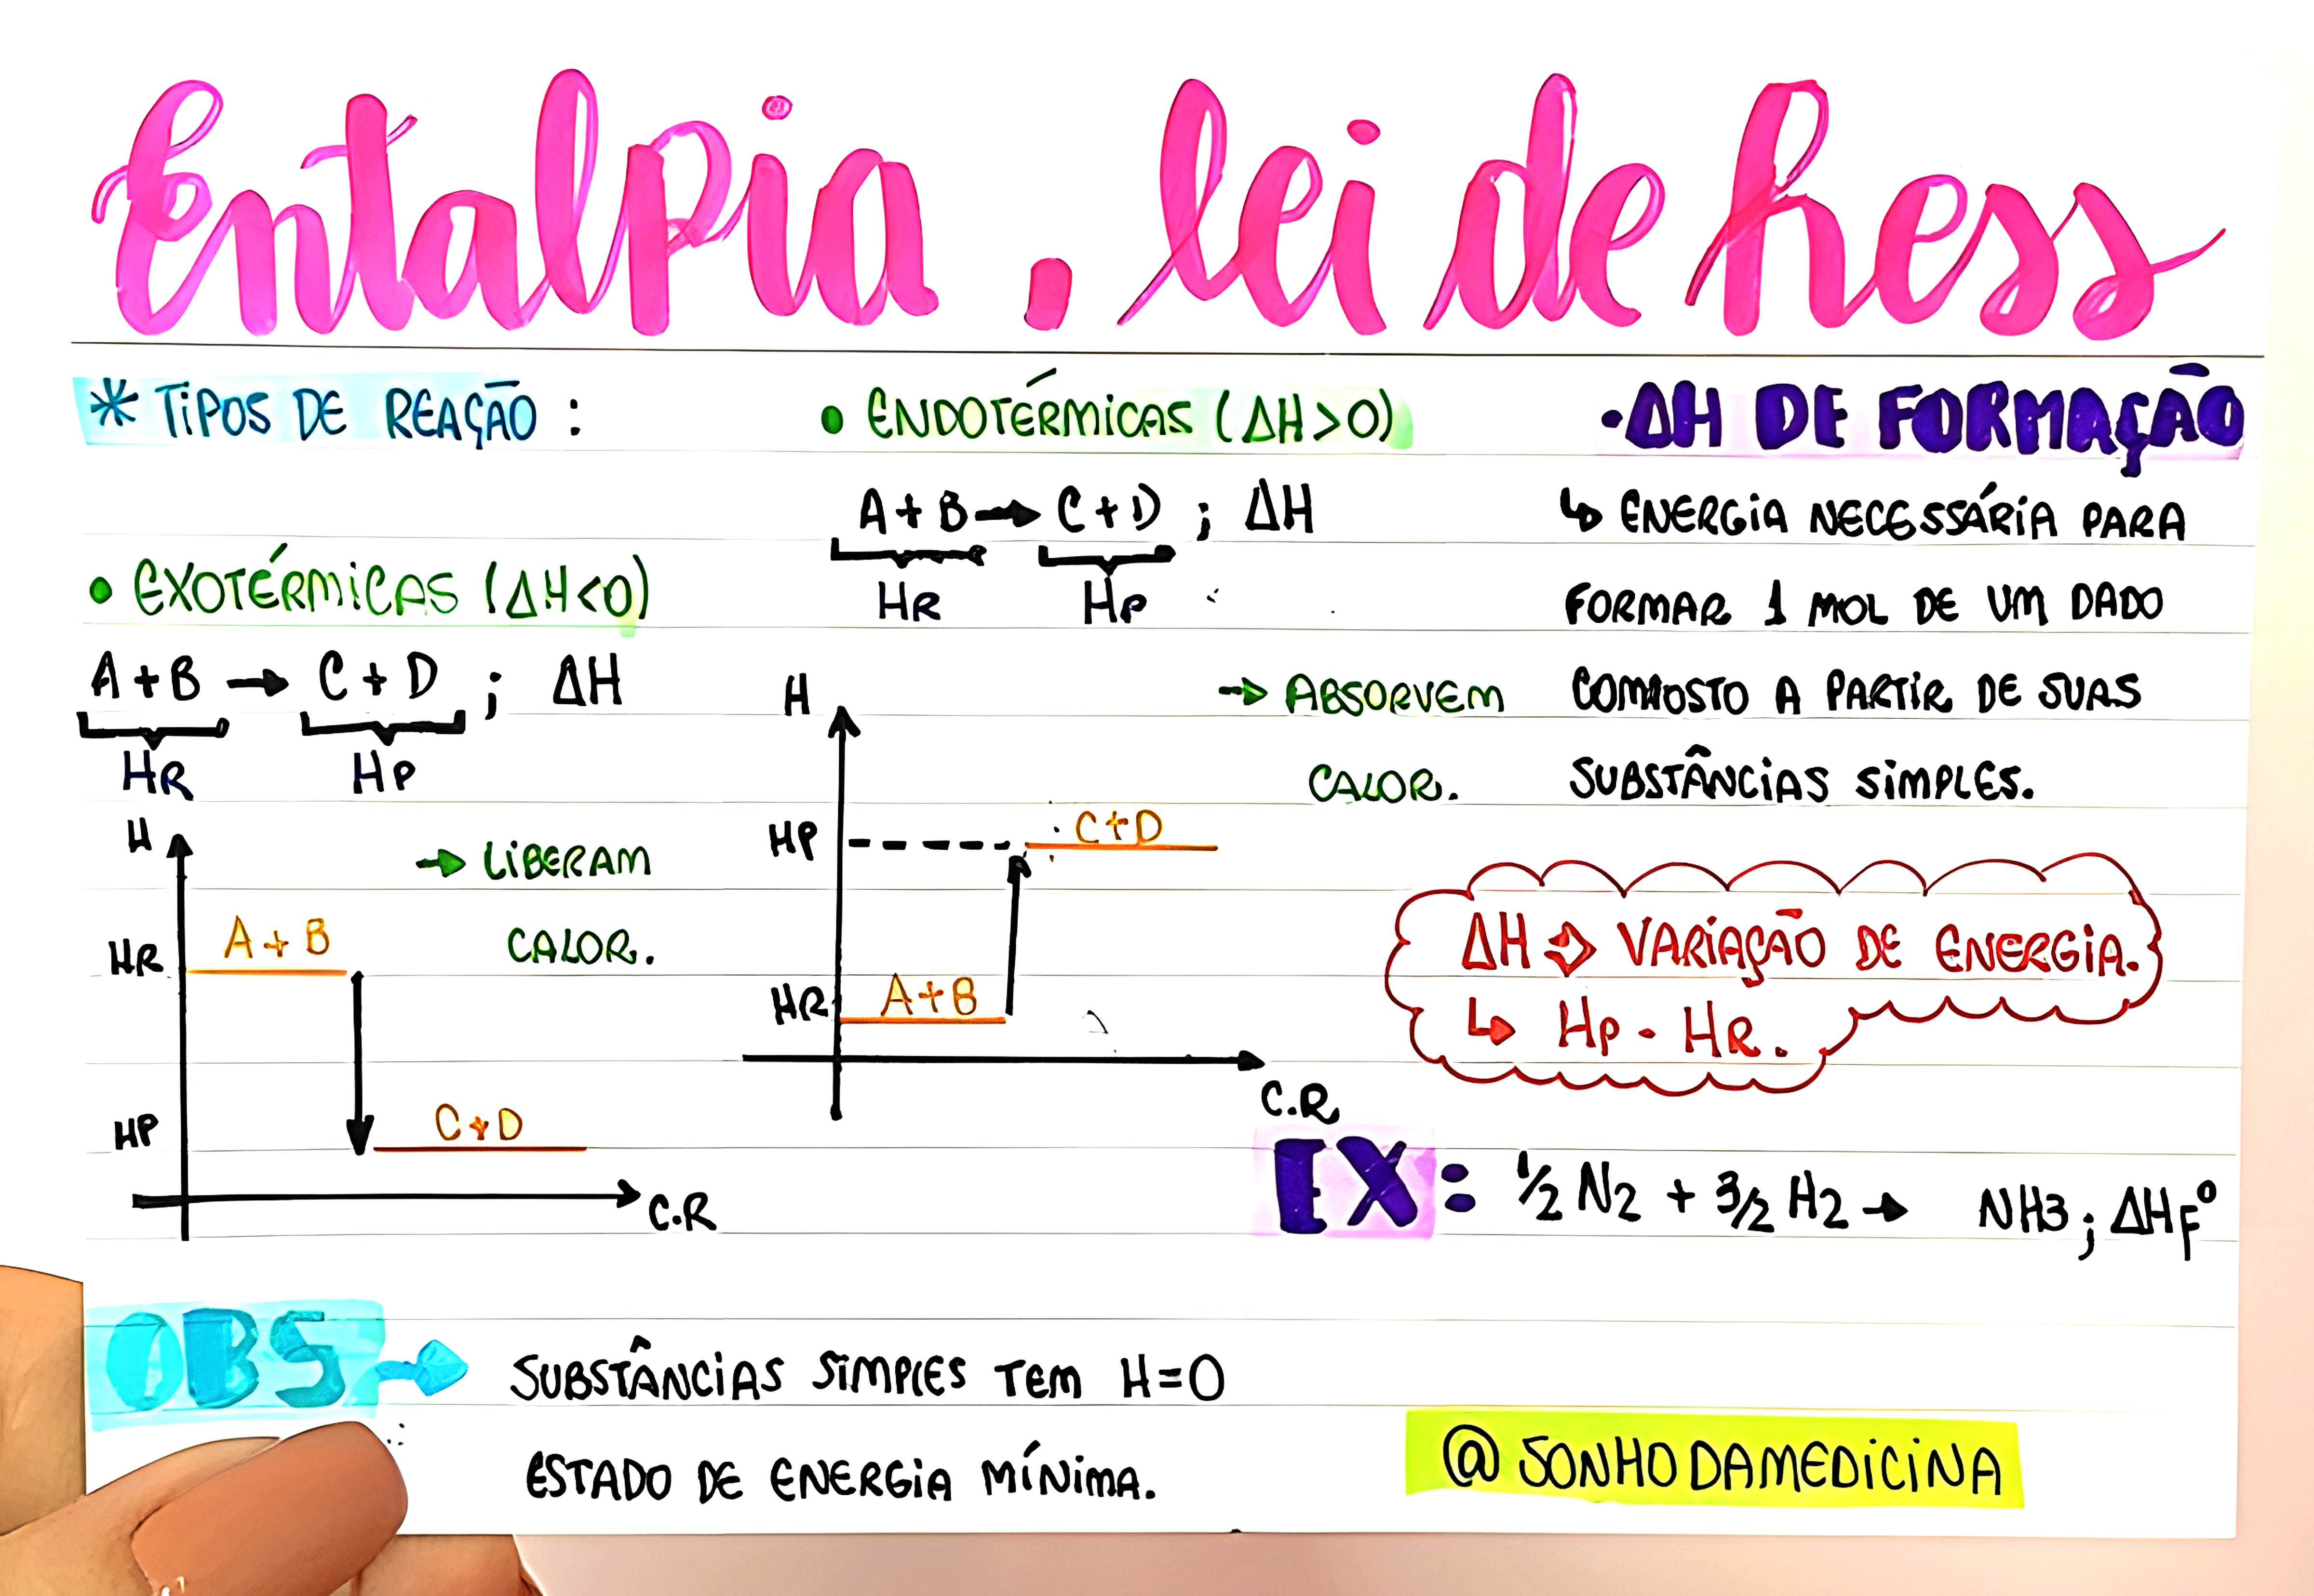 Entalpia . lei de hess
* TIPOS DE REAÇÃO :
• EXOTÉRMICAS (ΔH<0)
A + B → C + D ; ΔH
HR HP
H
→ LIBERAM
CALOR.
HR
A + B
HP
C + D
C.R
• ENDOTÉRMICAS (ΔH>0)
A + B → C + D ; ΔH
HR HP
H
→ ABSORVEM
CALOR.
HP
C+D
HR
A+B
C.R
• ΔH DE FORMAÇÃO
↳ ENERGIA NECESSÁRIA PARA
FORMAR 1 MOL DE UM DADO
COMPOSTO A PARTIR DE SUAS
SUBSTÂNCIAS SIMPLES.
ΔH → VARIAÇÃO DE ENERGIA.
↳ HP - HR.
EX: 1/2 N2 + 3/2 H2 → NH3 ; ΔHF°
OBS → SUBSTÂNCIAS SIMPLES TEM H=0
ESTADO DE ENERGIA MÍNIMA.
@SONHODAMEDICINA